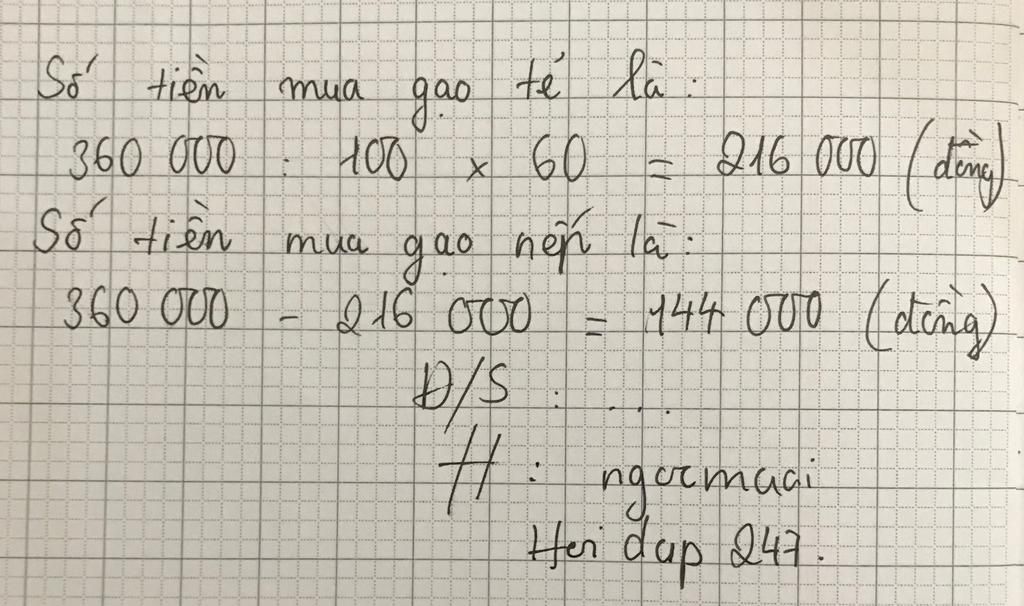 Số tiền mua gạo tẻ là:
360 000 : 100 x 60 = 216 000 (đồng)
Số tiền mua gạo nếp là:
360 000 - 216 000 = 144 000 (đồng)
Đ/S : ....
H : ngocmuai
Hoi dap 247.